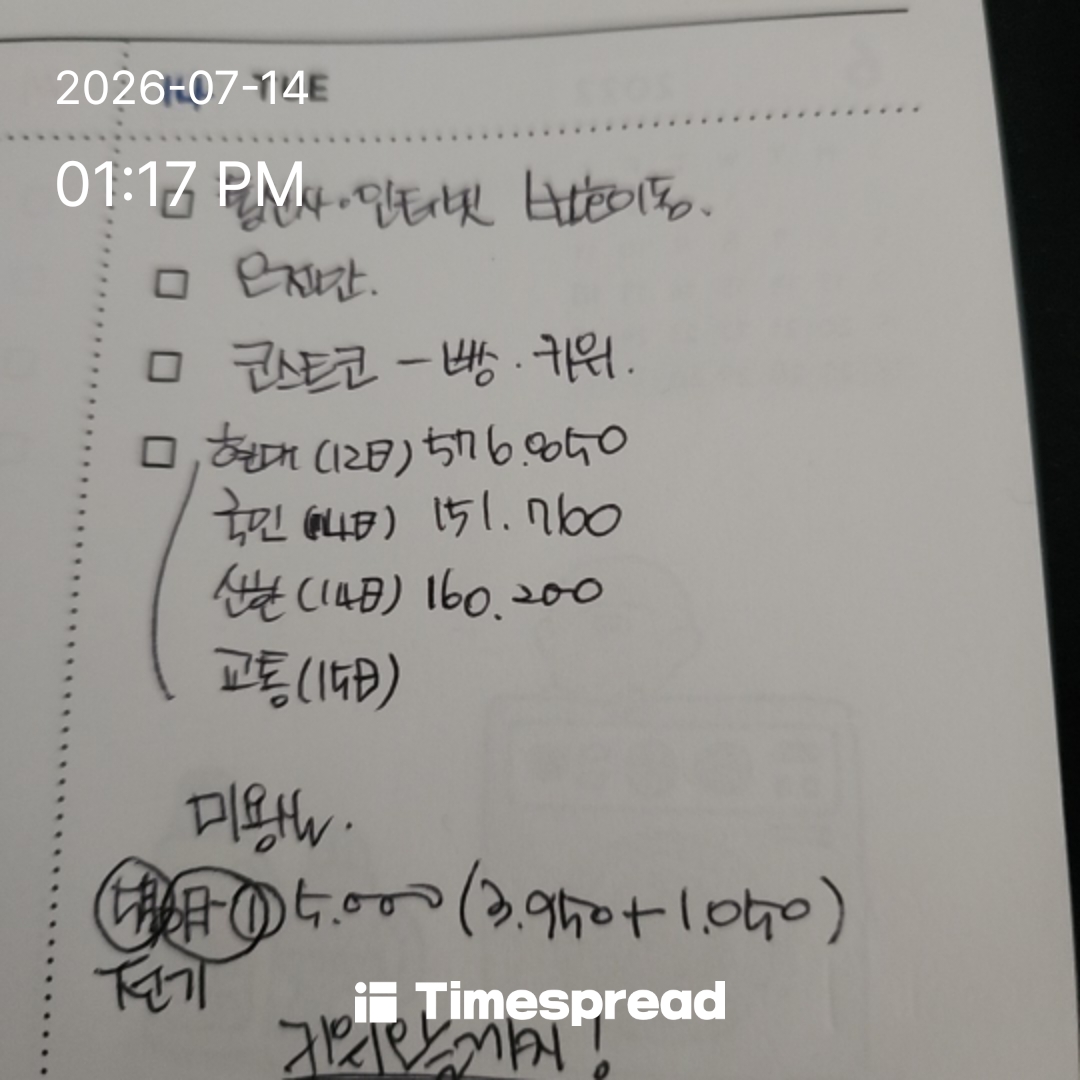 2026-07-14
01:17 PM
인터넷 번호이동.
은진만.
코스트코 - 빵 · 키위.
현대 (12日) 576.850
국민 (14日) 151.760
신한 (14日) 160.200
교통 (15日)
5.000 (3.950+1.050)
전기
Timespread